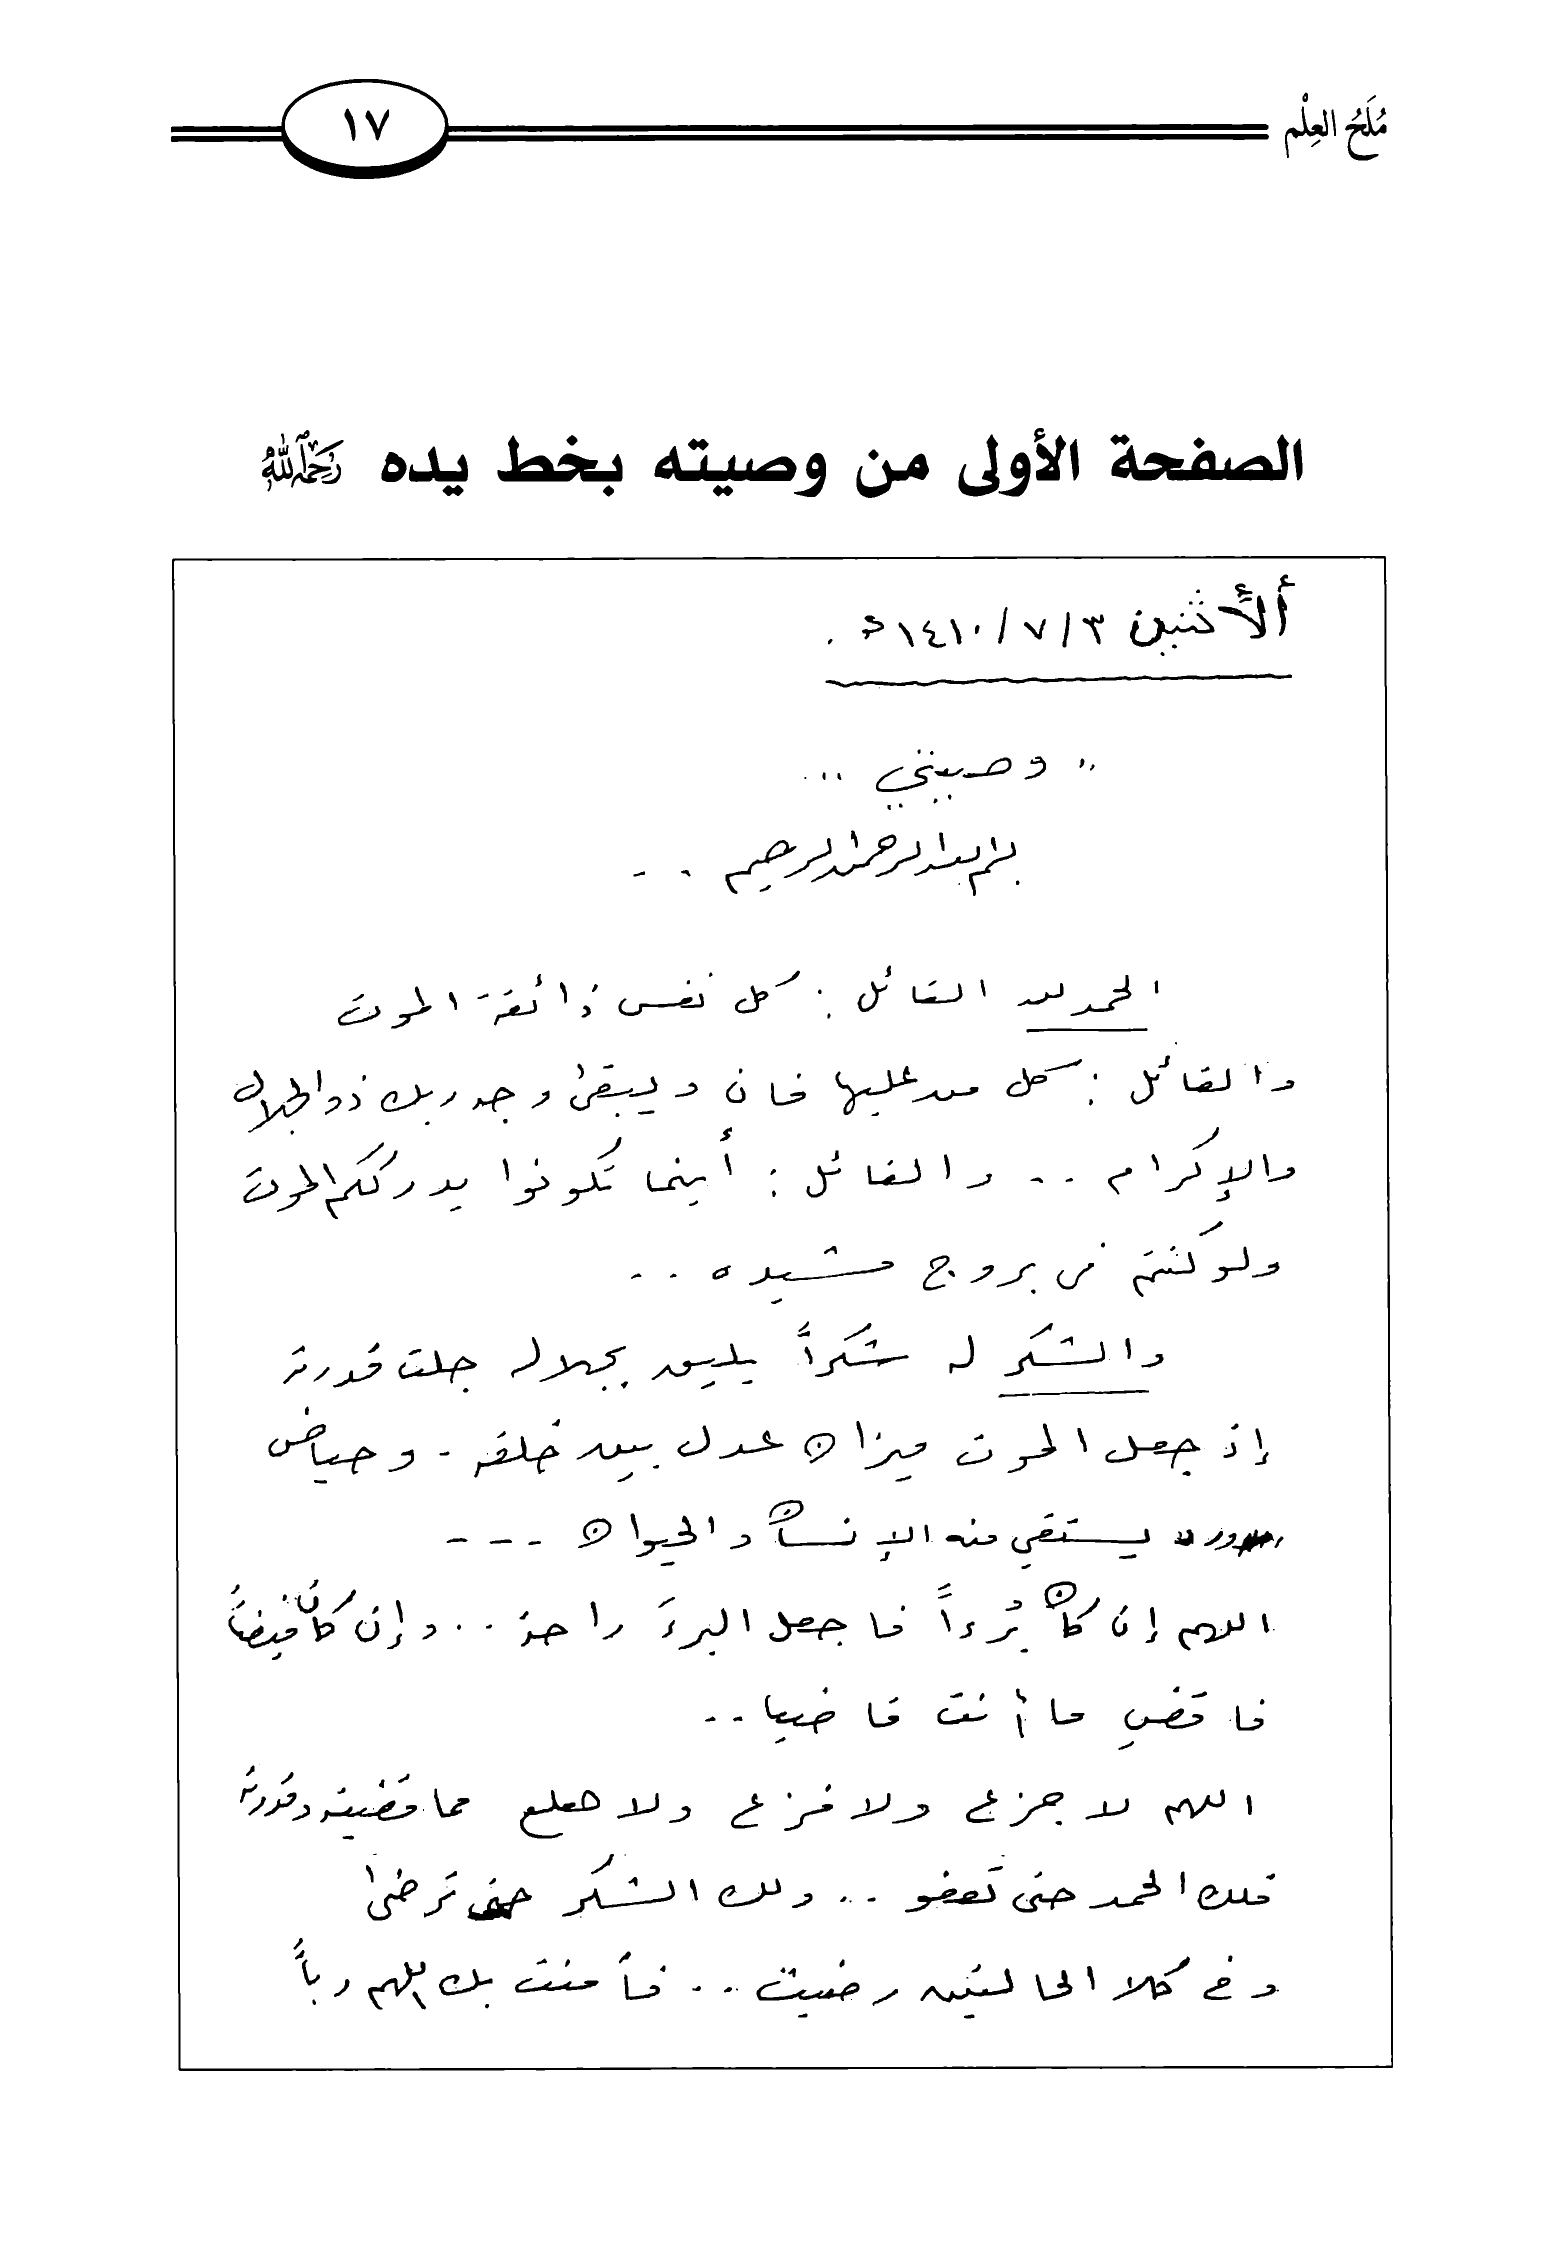 مُلَحُ العِلْم
١٧
الصفحة الأولى من وصيته بخط يده رَحِمَهُ ٱللَّهُ
ألأثنين ٣/٧/١٤١٠هـ .
" وصيتي " ..
بسم الله الرحمن الرحيم . .
الحمد لله القائل : كل نفس ذائقة الموت
والقائل : كل من عليها فان ويبقىٰ وجه ربك ذو الجلال
والإكرام . . والقائل : أينما تكونوا يدرككم الموت
ولو كنتم في بروج مشيده . .
والشكر له شكراً يليق بجلاله جلت قدرته
إذ جعل الموت ميزان عدل بين خلقه . وحياض
يستقي منه الإنسان والحيوان - - -
اللهم إن كان بُرءاً فاجعل البرءَ راحة . . وإن كان قبضاً
فاقضِ ما أنت قاضيا . .
اللهم لا جزع ولا فزع ولا هلع مما قضيته وقدرته
فلك الحمد حتى تعفو . . ولك الشكر حتى ترضىٰ
وفي كلا الحالتين رضيت . . فأمنت بك اللهم رباً